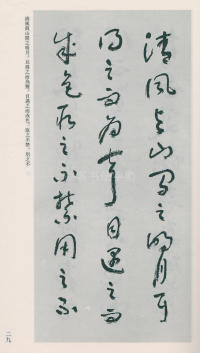 清風與山間之明月耳
得之而為聲目遇之而
成色取之無禁用之不
清風與山間之明月，耳得之而為聲，目遇之而成色。取之無禁，用之不
二九